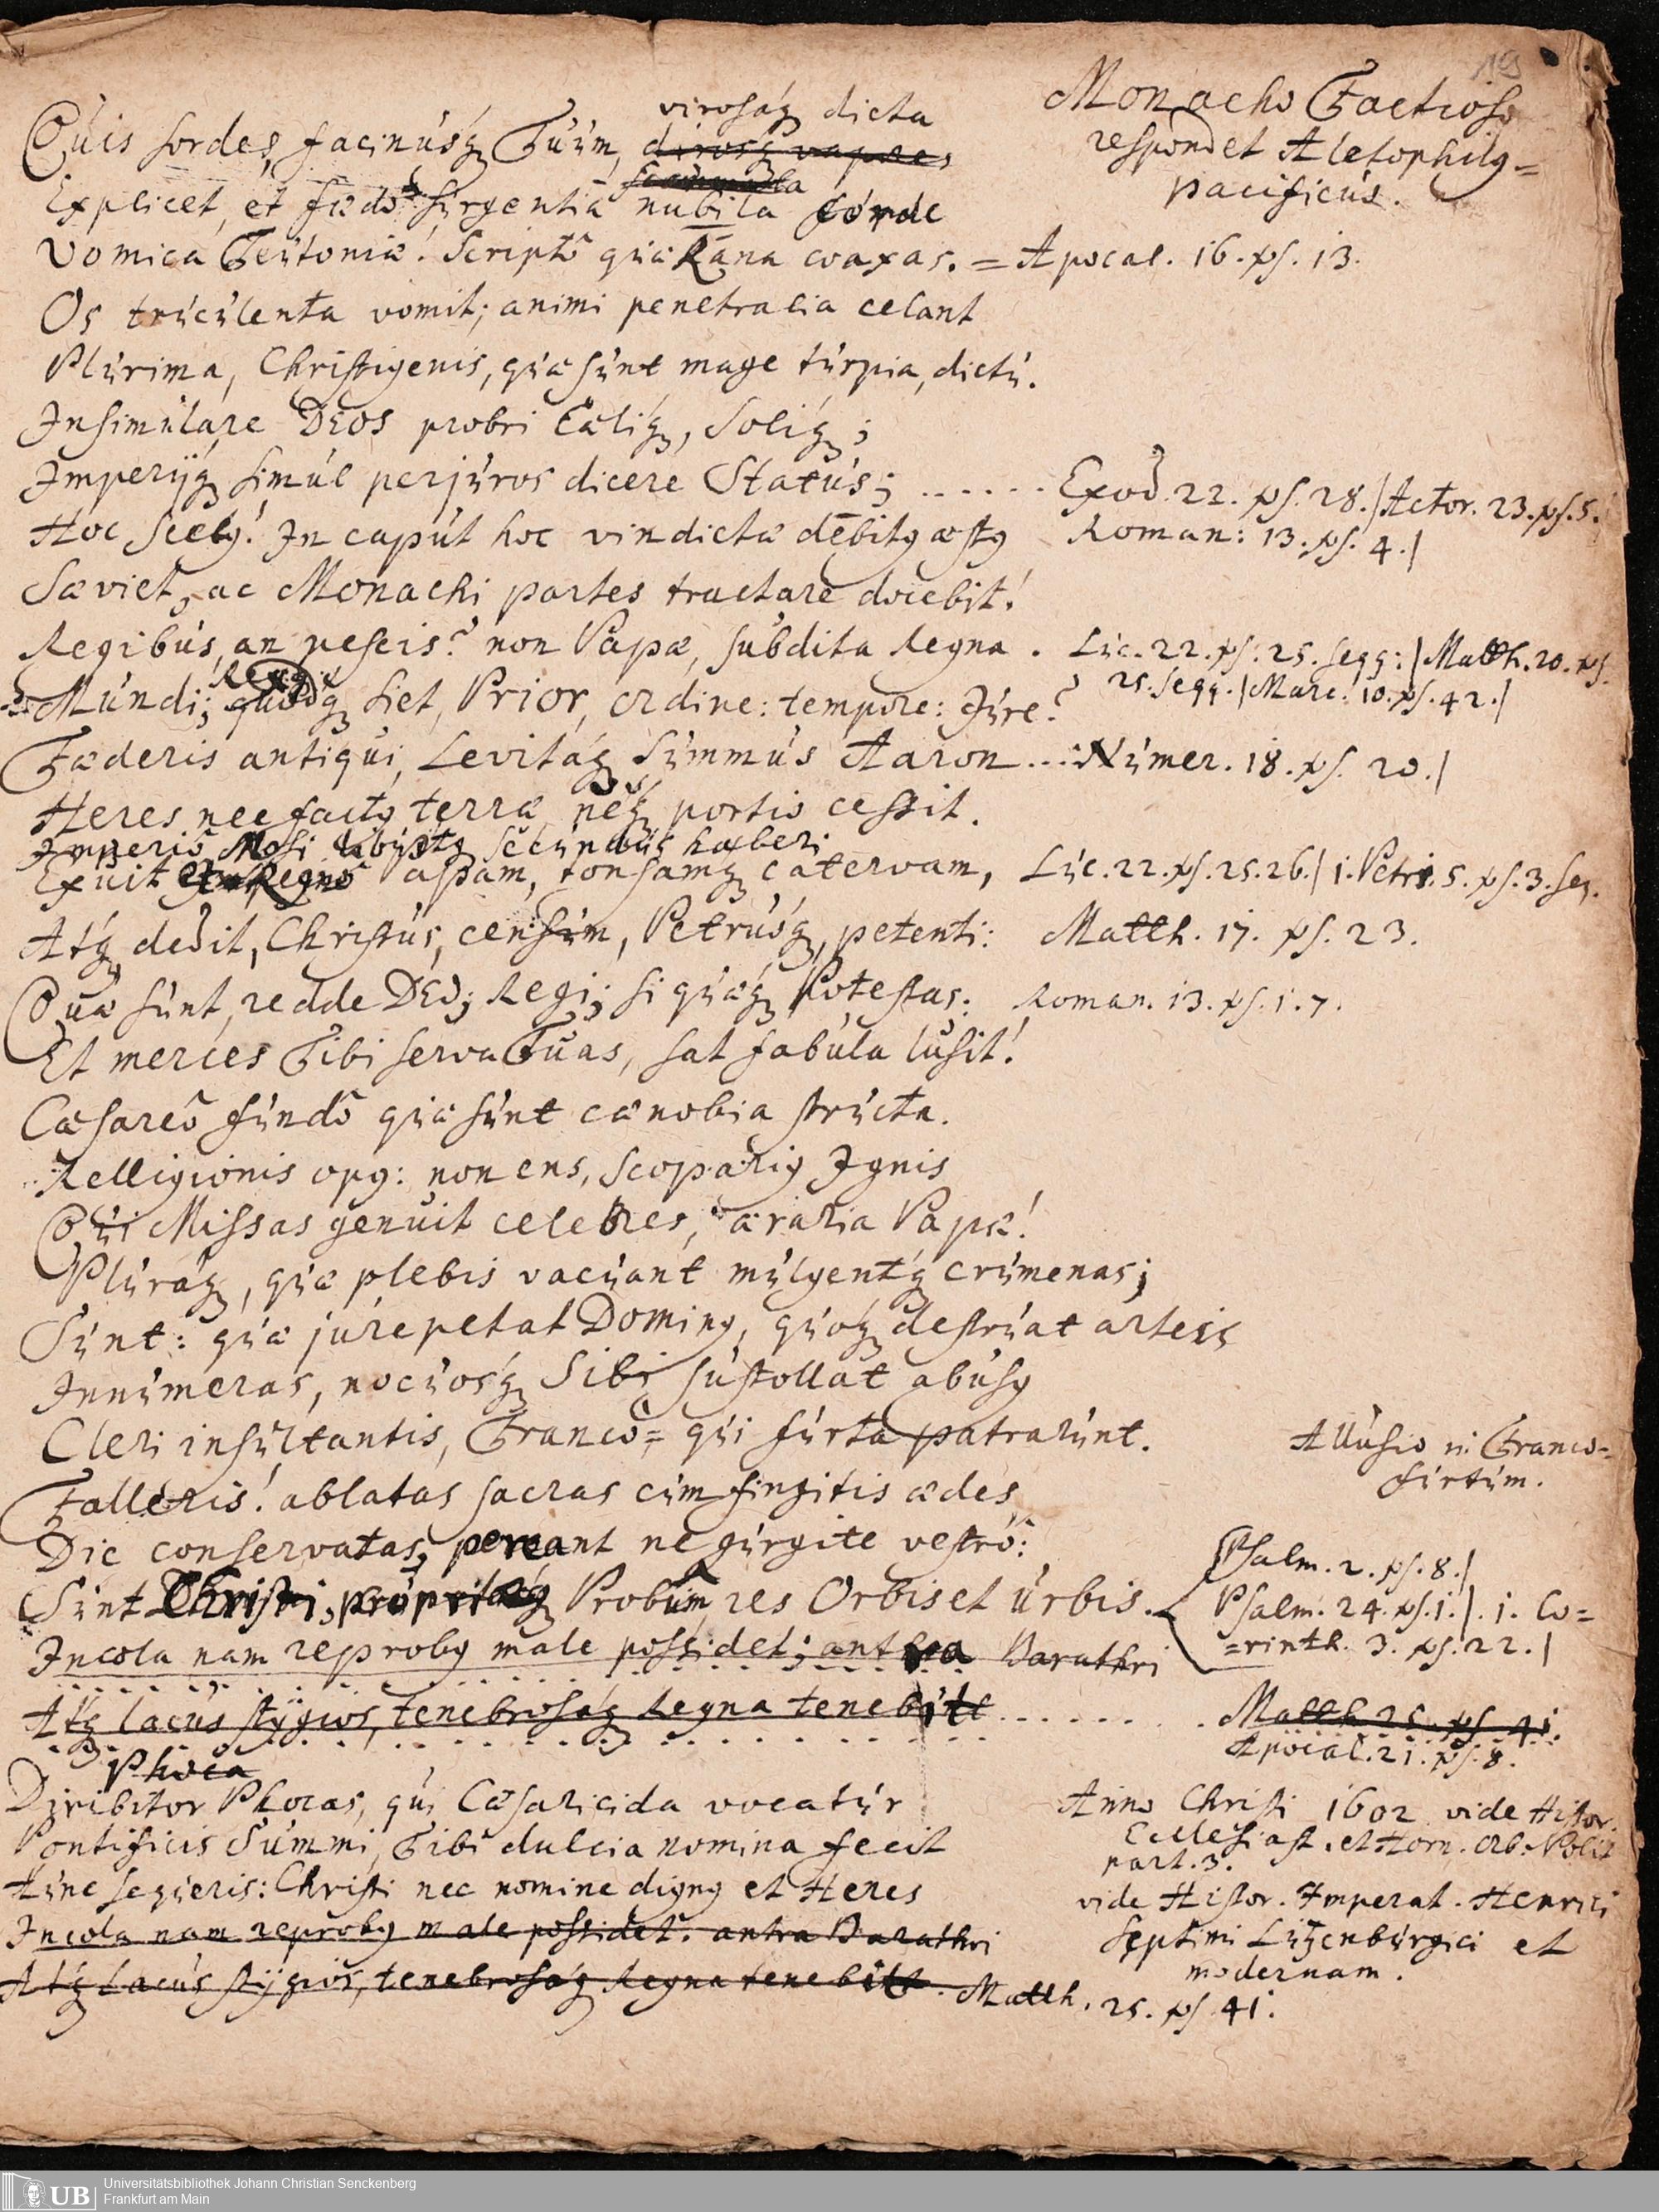 Monacho Factioso
respondet Aletophilꝰ=
pacificus.
virosáq; dicta
Quis sordes, facinúsq; Tuúm, dirosq; vapores
Explicet, et fædô surgentiâ nubila conde
Vomica Teutoniæ! Scriptô quæ Rana coaxas. = Apocal. 16. vs. 13.
Os truculenta vomit; animi penetralia celant
Plurima, Christigenis, quæ sunt mage turpia, dictu.
Insimulare DEOS probri Cæliq;, Soliq;;
Imperijq; simul perjuros dicere Status; ...... Exod. 22. vs. 28. | Actor. 23. vs. 5.
Hoc scelꝰ! In caput hoc vindictæ debitꝰ æstꝰ Roman: 13. vs. 4. |
Sæviet, ac Monachi partes tractare docebit!
Regibus, an nescis? non Papæ, subdita Regna . Luc. 22. vs. 25. seqq: | Matth. 20. vs.
25. seqq. | Marc. 10. vs. 42. |
Mundi; quodq; siet, Prior, ordine: tempore: Jure?
Fæderis antiqui, Levitáq; Summus Aaron ... Numer. 18. vs. 20. |
Heres nec factꝰ terræ neq; portio cessit.
Imperiô Mosi secundus haberi
Exuit Regno aspam, tonsamq; catervam, Luc. 22. vs. 25. 26. | 1. Petri. 5. vs. 3. seq.
Atq; dedit, Christus, censum, Petrusq;, petenti: Matth. 17. vs. 23.
Quæ sunt, redde DEO; Regi; si quæq; Potestas: Roman. 13. vs. 1. 7.
Et merces Tibi serva Tuas, sat fabula lusit!
Cæsareô fundô quæ sunt cænobia structa.
Relligionis opꝰ: non ens, scopariꝰ Ignis
Qui Missas genuit celebres, æraria Papæ!
Pluráq;, quæ plebis vacuant mulgentq; crumenas;
Sunt: quæ jure petat Dominꝰ, quoq; destruat artes
Innumeras, nocuosq; Sibi sustollat abusꝰ
Cleri insultantis, Franco= qui furta patrarunt. Allusio in Franco=
furtum.
Falleris! ablatas sacras cum fingitis ædes
Dic conservatas, pereant ne gurgite vestrô:
Psalm. 2. vs. 8. |
Sunt Christi, Probum res Orbis et Urbis. Psalm. 24. vs. 1. |. 1. Co=
=rinth. 3. vs. 22. |
Incola nam reprobꝰ male possidet; antra Barathri
Atq; lacus stygios, tenebrosáq; Regna tenebit ......... Matth. 25. vs. 41.
Apocal. 21. vs. 8.
Phoca
Diribitor Phocas, qui Cæsaricida vocatur Anno Christi 1602 vide Histor.
Pontificis Summi, Tibi dulcia nomina fecit Ecclesiast. et Horn. Orb. Polit
part. 3.
Hunc sequeris: Christi nec nomine dignꝰ et Heres vide Histor. Imperat. Henrici
Septimi Lützenburgici et
modernam.
Incola nam reprobꝰ male possidet. antra Barathri
Atq; Lacus stygios, tenebrosáq; Regna tenebit. Matth. 25. vs 41.
Universitätsbibliothek Johann Christian Senckenberg
Frankfurt am Main
UB